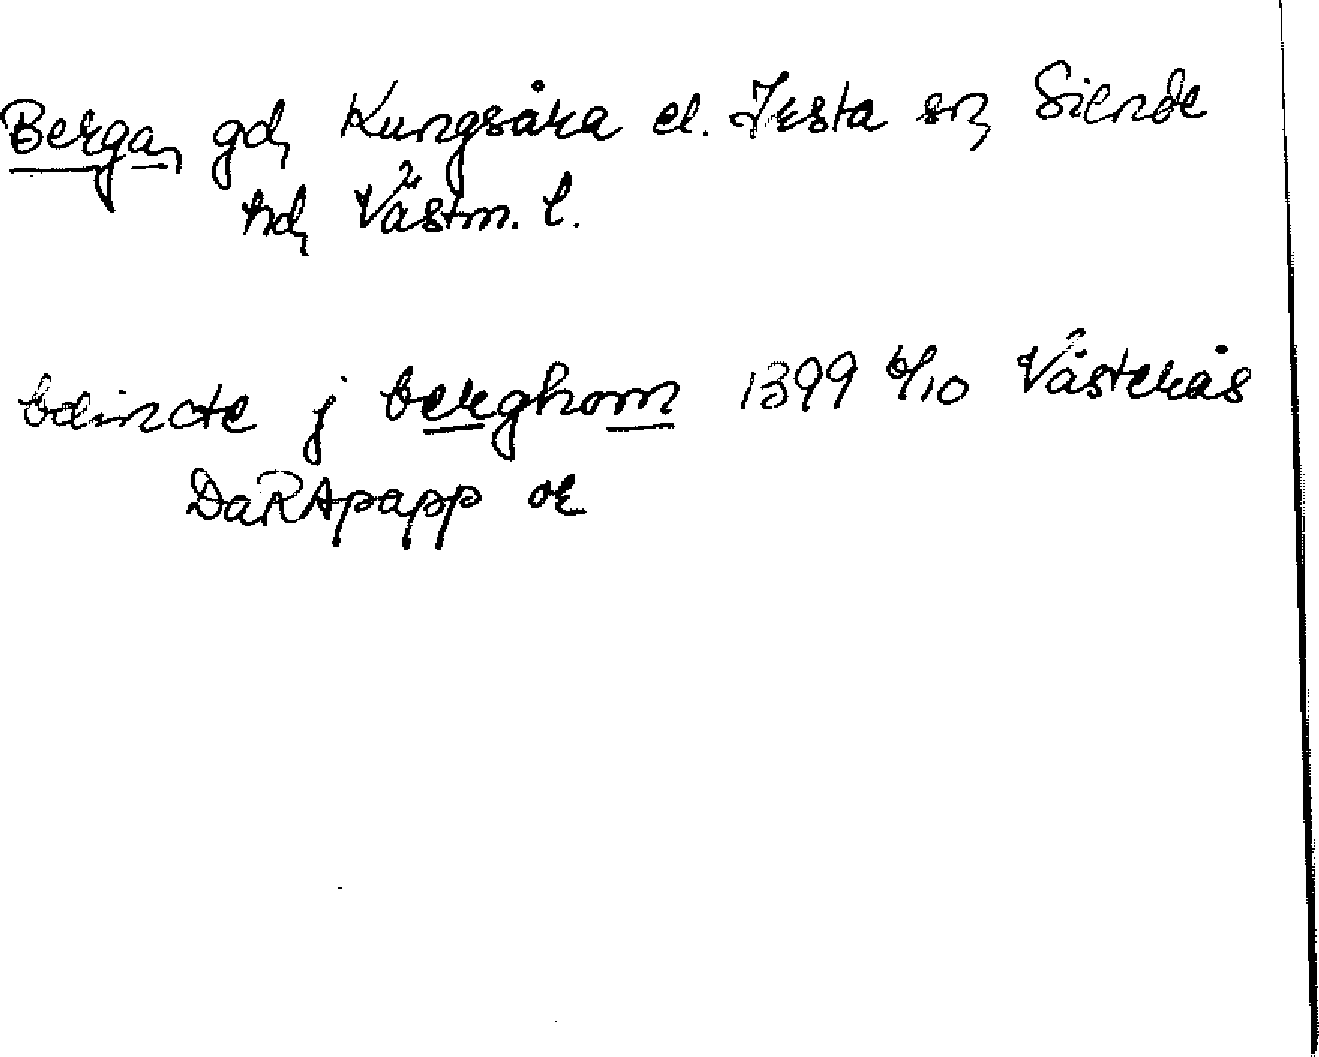 Berga, gd, Kungsåra el. Irsta sn, Siende
hd, Västm. l.
boende j berghom 1399 6/10 Västerås
DaRApapp or